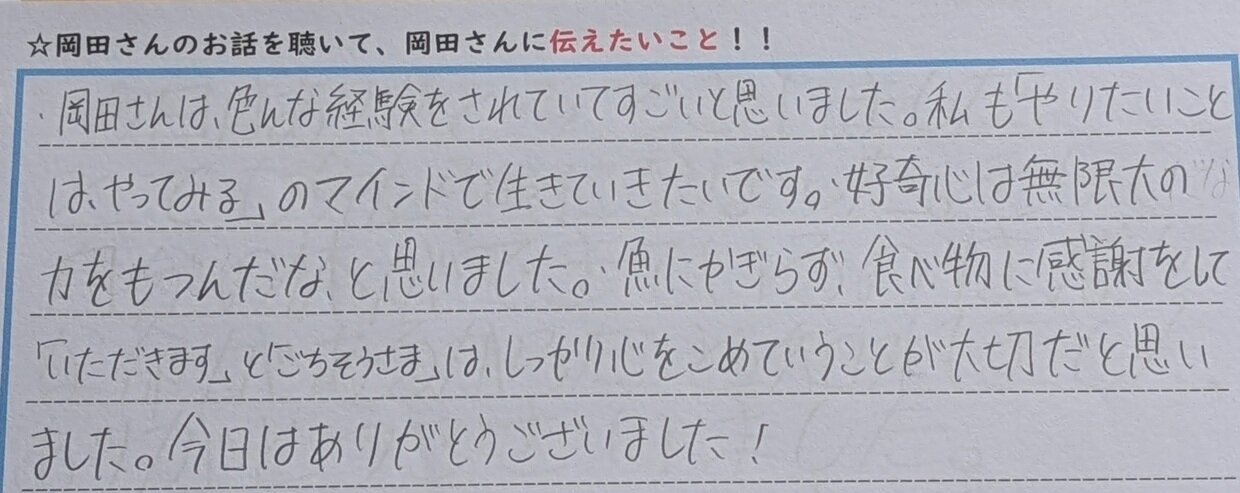 ☆岡田さんのお話を聴いて、岡田さんに伝えたいこと！！
・岡田さんは、色んな経験をされていてすごいと思いました。私も「やりたいこと
は、やってみる」のマインドで生きていきたいです。・好奇心は無限大の
力をもつんだな、と思いました。・魚にかぎらず、食べ物に感謝をして
「いただきます」と「ごちそうさま」は、しっかり心をこめていうことが大切だと思い
ました。今日はありがとうございました！